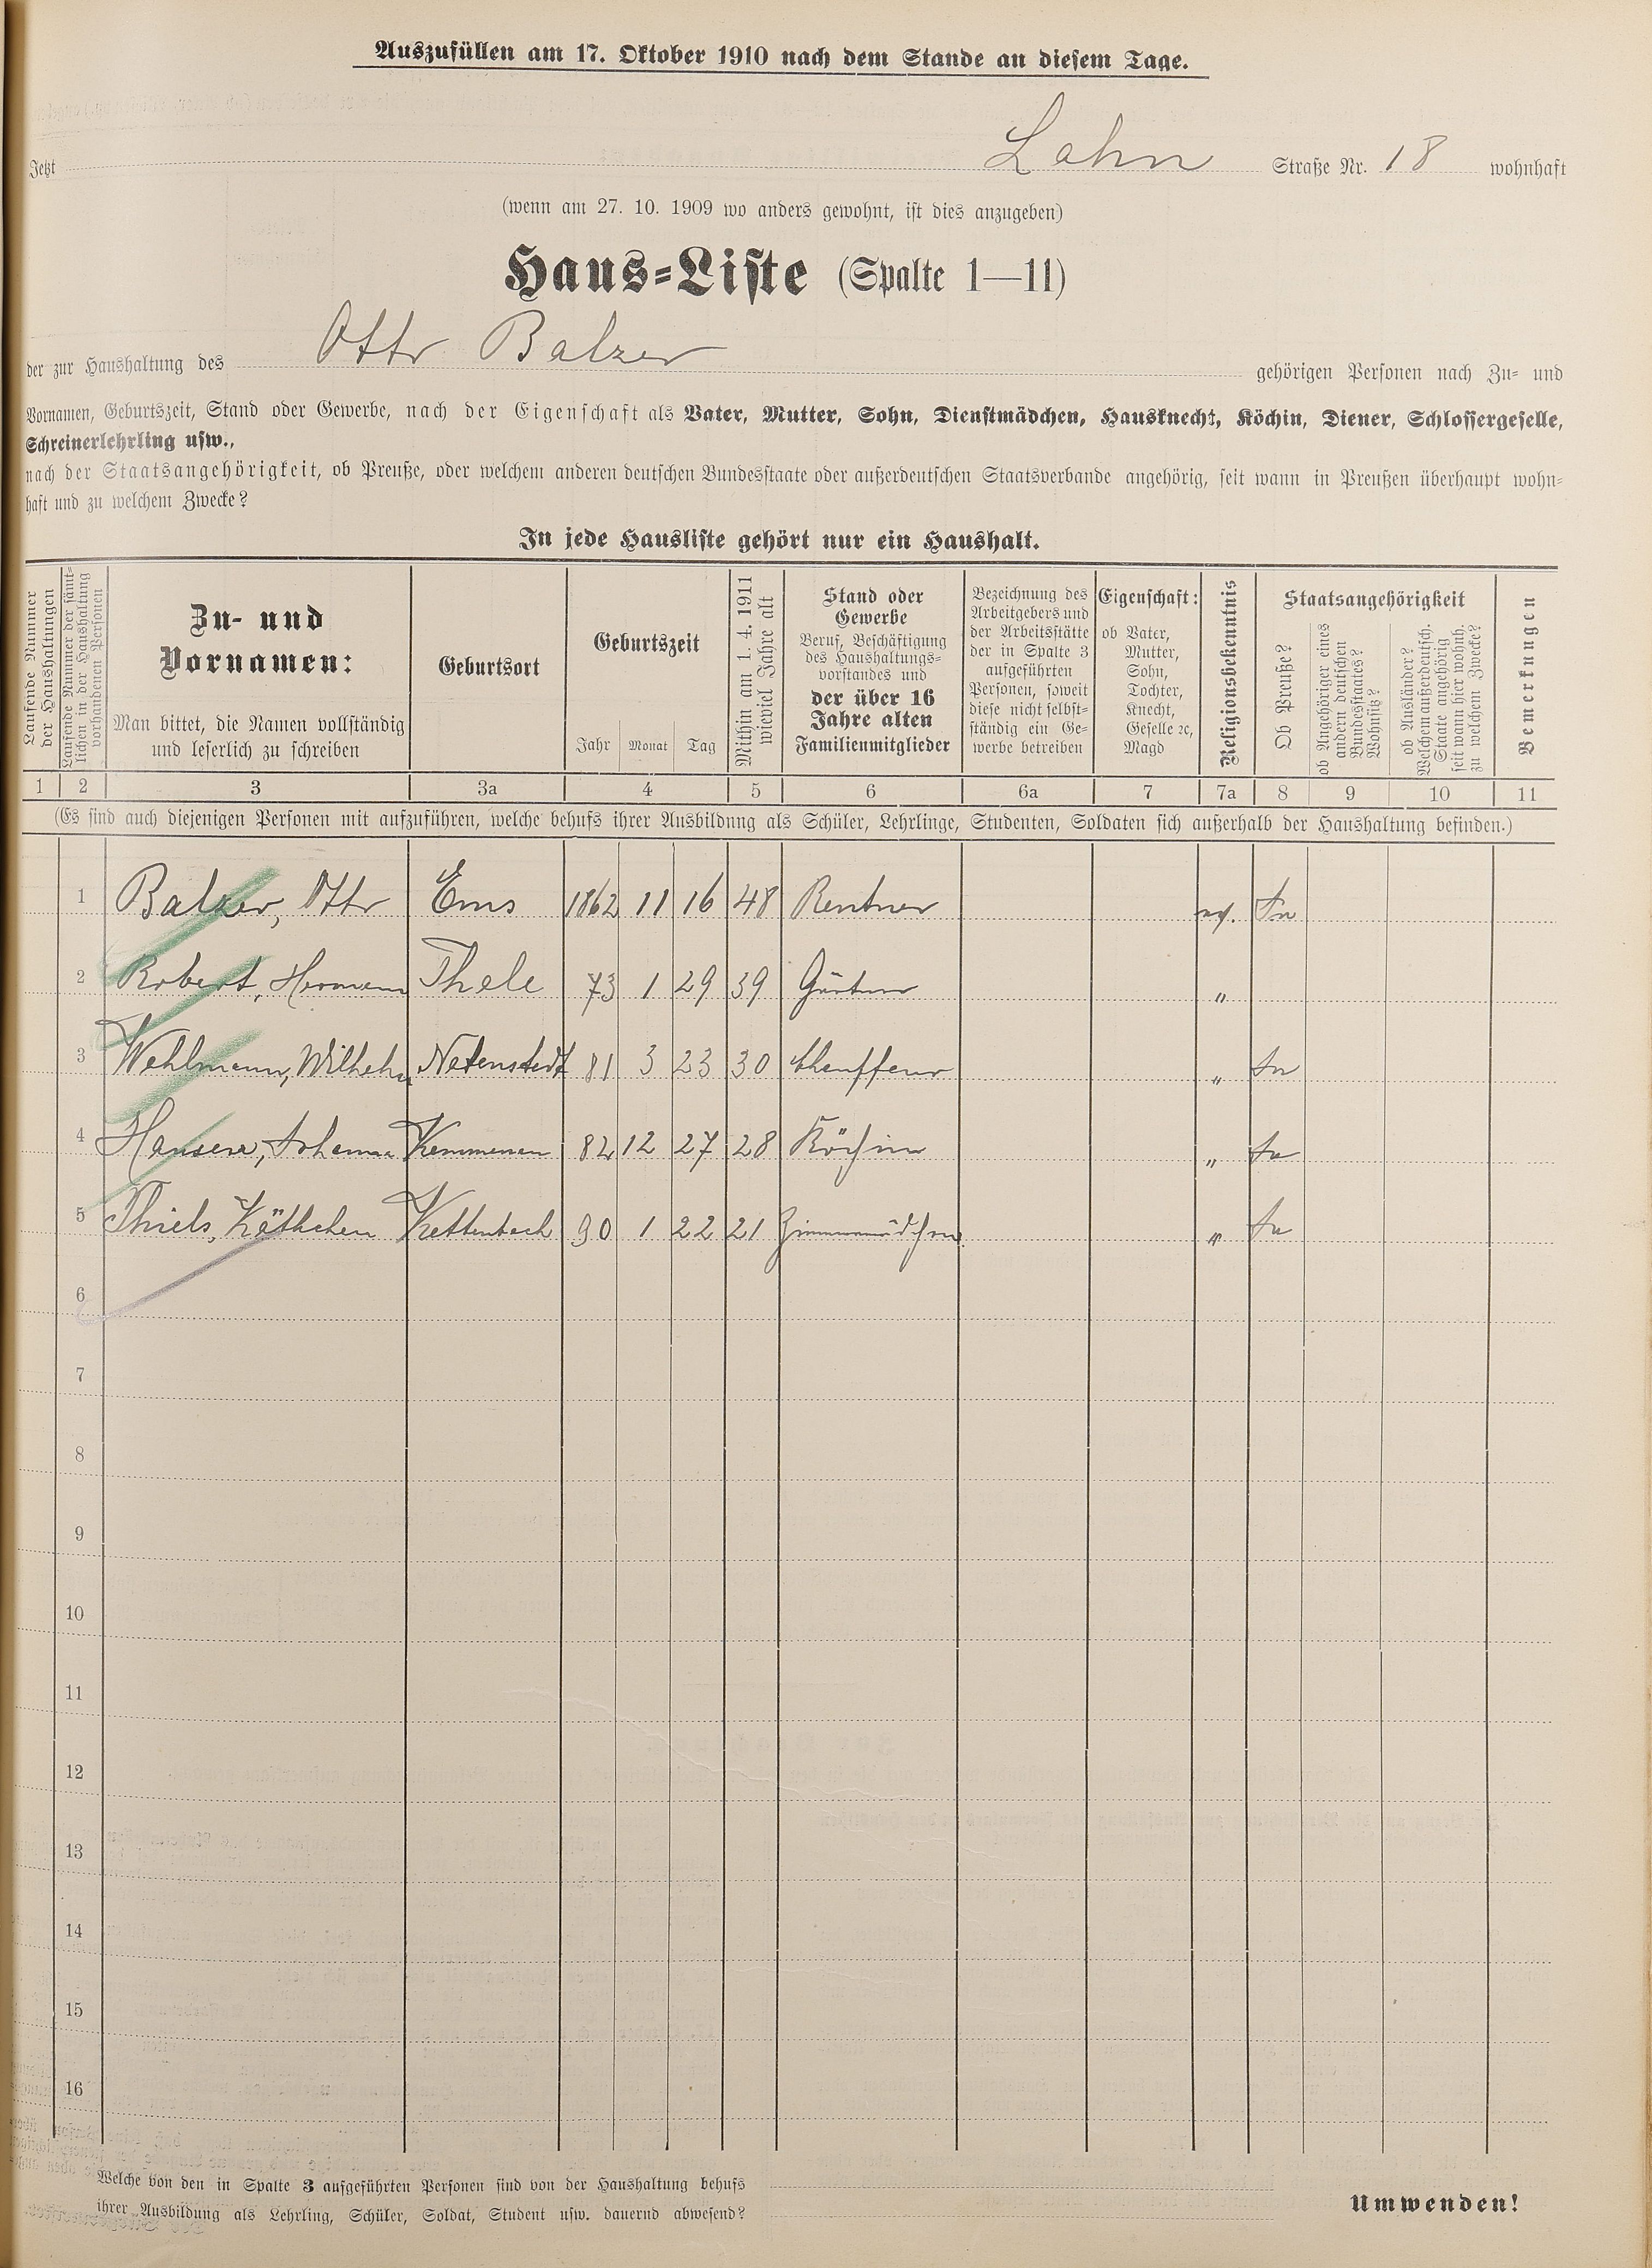 Auszufüllen am 17. Oktober 1910 nach dem Stande an diesem Tage.
Jetzt Lahn Straße Nr. 18 wohnhaft
(wenn am 27. 10. 1909 wo anders gewohnt, ist dies anzugeben)
Haus-Liste (Spalte 1—11)
der zur Haushaltung des Otto Balzer gehörigen Personen nach Zu- und
Vornamen, Geburtszeit, Stand oder Gewerbe, nach der Eigenschaft als Vater, Mutter, Sohn, Dienstmädchen, Hausknecht, Köchin, Diener, Schlossergeselle,
Schreinerlehrling usw.,
nach der Staatsangehörigkeit, ob Preuße, oder welchem anderen deutschen Bundesstaate oder außerdeutschen Staatsverbande angehörig, seit wann in Preußen überhaupt wohn-
haft und zu welchem Zwecke?
In jede Hausliste gehört nur ein Haushalt.
Laufende Nummer
der Haushaltungen
Laufende Nummer der sämt-
lichen in der Haushaltung
vorhandenen Personen
Zu- und
Vornamen:
Man bittet, die Namen vollständig
und leserlich zu schreiben
Geburtsort
Geburtszeit
Jahr Monat Tag
Mithin am 1. 4. 1911
wieviel Jahre alt
Stand oder
Gewerbe
Beruf, Beschäftigung
des Haushaltungs-
vorstandes und
der über 16
Jahre alten
Familienmitglieder
Bezeichnung des
Arbeitgebers und
der Arbeitsstätte
der in Spalte 3
aufgeführten
Personen, soweit
diese nicht selbst-
ständig ein Ge-
werbe betreiben
Eigenschaft:
ob Vater,
Mutter,
Sohn,
Tochter,
Knecht,
Geselle ec,
Magd
Religionsbekenntnis
Staatsangehörigkeit
Ob Preuße?
ob Angehöriger eines
andern deutschen
Bundesstaates?
Wohnsitz?
ob Ausländer?
Welchem außerdeutsch.
Staate angehörig
seit wann hier wohnh.
zu welchem Zwecke?
Bemerkungen
1 2 3 3a 4 5 6 6a 7 7a 8 9 10 11
(Es sind auch diejenigen Personen mit aufzuführen, welche behufs ihrer Ausbildung als Schüler, Lehrlinge, Studenten, Soldaten sich außerhalb der Haushaltung befinden.)
1 Balzer, Otto Ems 1862 11 16 48 Rentner
2 Robert, Hermann Thele 73 1 29 39 Gärtner "
3 Wehlmann, Wilhelm 81 3 23 30 Chauffeur "
4 Hansen, Johanna Kemmenau 82 12 27 28 Köchin "
5 Thiels, Käthchen Kettenbach 90 1 22 21 Zimmermädchen "
6
7
8
9
10
11
12
13
14
15
16
Welche von den in Spalte 3 aufgeführten Personen sind von der Haushaltung behufs
ihrer Ausbildung als Lehrling, Schüler, Soldat, Student usw. dauernd abwesend?
Umwenden!